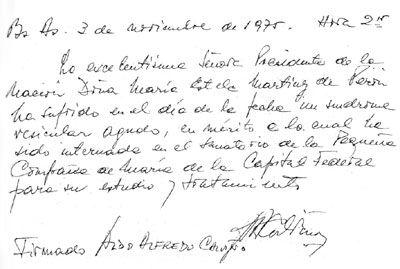 Bs As. 3 de noviembre de 1975. Hora 2
La excelentísima Señora Presidenta de la
Nación Doña María Estela Martínez de Perón
ha sufrido en el día de la fecha un sindrome
vesicular agudo, en mérito a lo cual ha
sido internada en el Sanatorio de la Pequeña
Compañia de María de la Capital Federal
para su estudio y tratamiento
Firmado ALDO ALFREDO